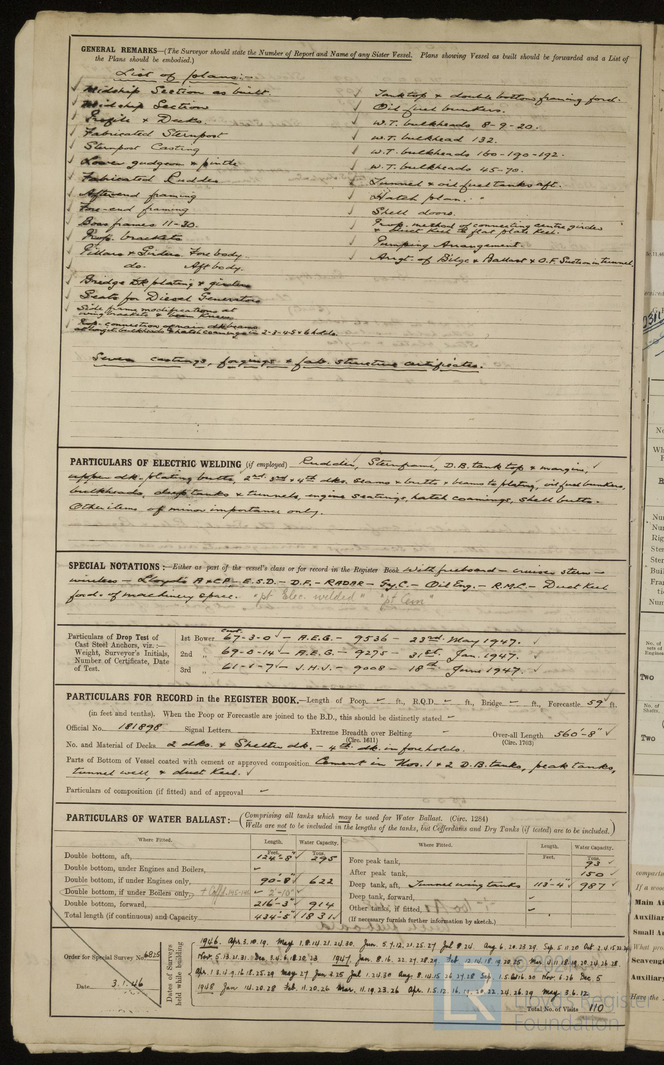 GENERAL REMARKS—(The Surveyor should state the Number of Report and Name of any Sister Vessel. Plans showing Vessel as built should be forwarded and a List of
the Plans should be embodied.)
List of plans:-
Midship Section as built.
Midship Section
Profile & Decks
Fabricated Sternpost
Sternpost Casting
Lower gudgeon & pintle
Fabricated Rudder
After end framing
Fore-end framing
Boss frames 11-30.
Prop. brackets
Pillars & Girders Fore body.
do. Aft body.
Bridge Dk plating & girders
Seats for Diesel Generators
Side frame modifications at
Prop. connection of main dk beams
at longl. bulkheads & hatch coamings in 2-3-4-5 & 6 holds.
Tank top & double bottom framing ford.
Oil fuel bunkers.
W.T. bulkheads 8-9-20.
W.T. bulkhead 132.
W.T. bulkheads 160-190-192.
W.T. bulkheads 45-70.
Tunnel & oil fuel tanks aft.
Hatch plan.
Shell doors.
Prop. method of connecting centre girder
& Duct Keel to flat plate Keel.
Pumping Arrangement.
Arrgt of Bilge & Ballast & O.F. Suction in tunnel
Seven castings, forgings & fab. structure certificates.
PARTICULARS OF ELECTRIC WELDING (if employed) Rudder, Sternframe, D.B. tank top & margin,
upper dk. plating butts, 2nd 3rd & 4th dks. seams & butts & beams to plating, oil fuel bunkers,
bulkheads, deep tanks & tunnels, engine seatings, hatch coamings, shell butts.
Other items of minor importance only.
SPECIAL NOTATIONS:—Either as part of the vessel's class or for record in the Register Book With freeboard - cruiser stern -
wireless - Lloyds A & CP - E.S.D - D.F. - RADAR - Gy.C. - Oil Eng. - R.M.C. - Duct Keel
ford. of machinery space. "pt Elec. welded" "pt Cem"
Particulars of Drop Test of
Cast Steel Anchors, viz.:—
Weight, Surveyor's Initials,
Number of Certificate, Date
of Test.
1st Bower 67-3-0 - A.E.G. - 9536 - 23rd May 1947.
2nd „ 69-0-14 - A.E.G. - 9275 - 31st Jan. 1947.
3rd „ 61-1-7 - J.H.J. - 9008 - 18th June 1947.
PARTICULARS FOR RECORD in the REGISTER BOOK.—Length of Poop - ft., R.Q.D. - ft., Bridge - ft., Forecastle 59 ft.
(in feet and tenths). When the Poop or Forecastle are joined to the B.D., this should be distinctly stated -
Official No. 181898 Signal Letters Extreme Breadth over Belting - Over-all Length 560'-8"
(Circ. 1611) (Circ. 1703)
No. and Material of Decks 2 dks. & Shelter dk. - 4th dk. in foreholds.
Parts of Bottom of Vessel coated with cement or approved composition Cement in Nos. 1 & 2 D.B. tanks, peak tanks,
tunnel well, & duct keel.
Particulars of composition (if fitted) and of approval -
PARTICULARS OF WATER BALLAST:—(Comprising all tanks which may be used for Water Ballast. (Circ. 1284)
Wells are not to be included in the lengths of the tanks, but Cofferdams and Dry Tanks (if tested) are to be included.)
Where Fitted. Length. Water Capacity. Where Fitted. Length. Water Capacity.
Feet. Tons. Feet. Tons.
Double bottom, aft, 124'-8" 295
Double bottom, under Engines and Boilers, -
Double bottom, if under Engines only, 90'-8" 622
Double bottom, if under Boilers only,
Double bottom, forward, 216'-3" 914
Total length (if continuous) and Capacity 434'-5" 1831
Fore peak tank, 93
After peak tank, 150
Deep tank, aft, Tunnel wing tanks 113'-4" 987
Deep tank, forward, -
Other tanks, if fitted, -
(If necessary furnish further information by sketch.)
Order for Special Survey No. 6825
Date 3.1.46
Dates of Surveys
held while building
1946. Apr. 5.10.19. May 1.8.14.21.24.30. Jun 5.7.12.21.25.27 Jul 8.24. Aug 6.20.23.29
1948 Jan 14.20.28 Feb. 11.20.26 Mar. 11.19.23.26
Total No. of Visits 110
Lloyd's Register
Foundation